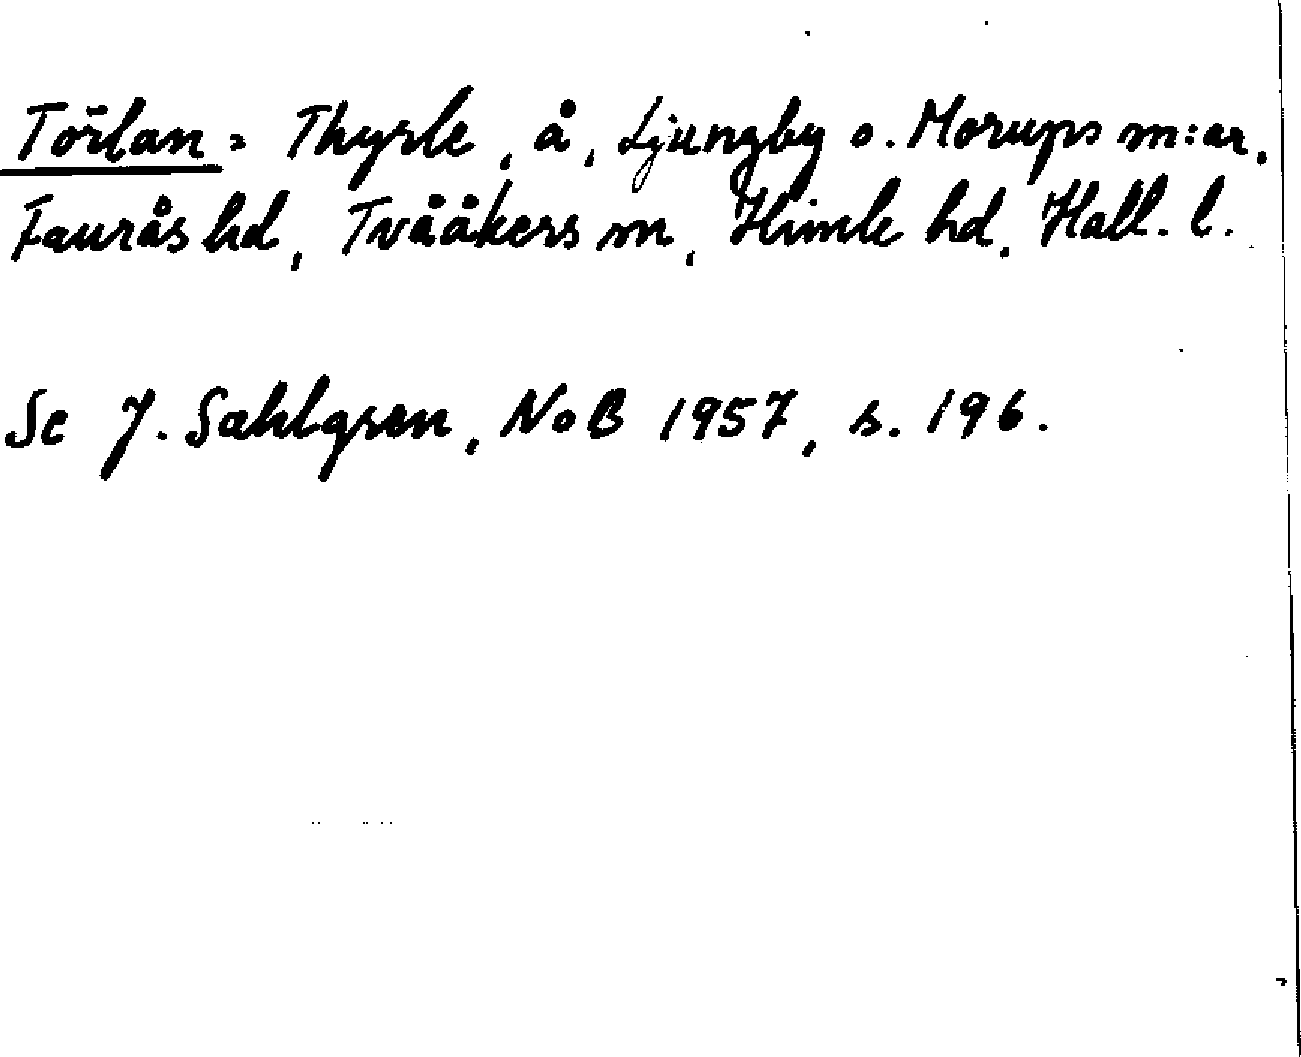 Törlan = Thyrle, å, Ljungby o. Morups m:ar,
Faurås hd, Tvååkers sn, Himle hd. Hall. l.
Se J. Sahlgren, NoB 1957, s. 196.